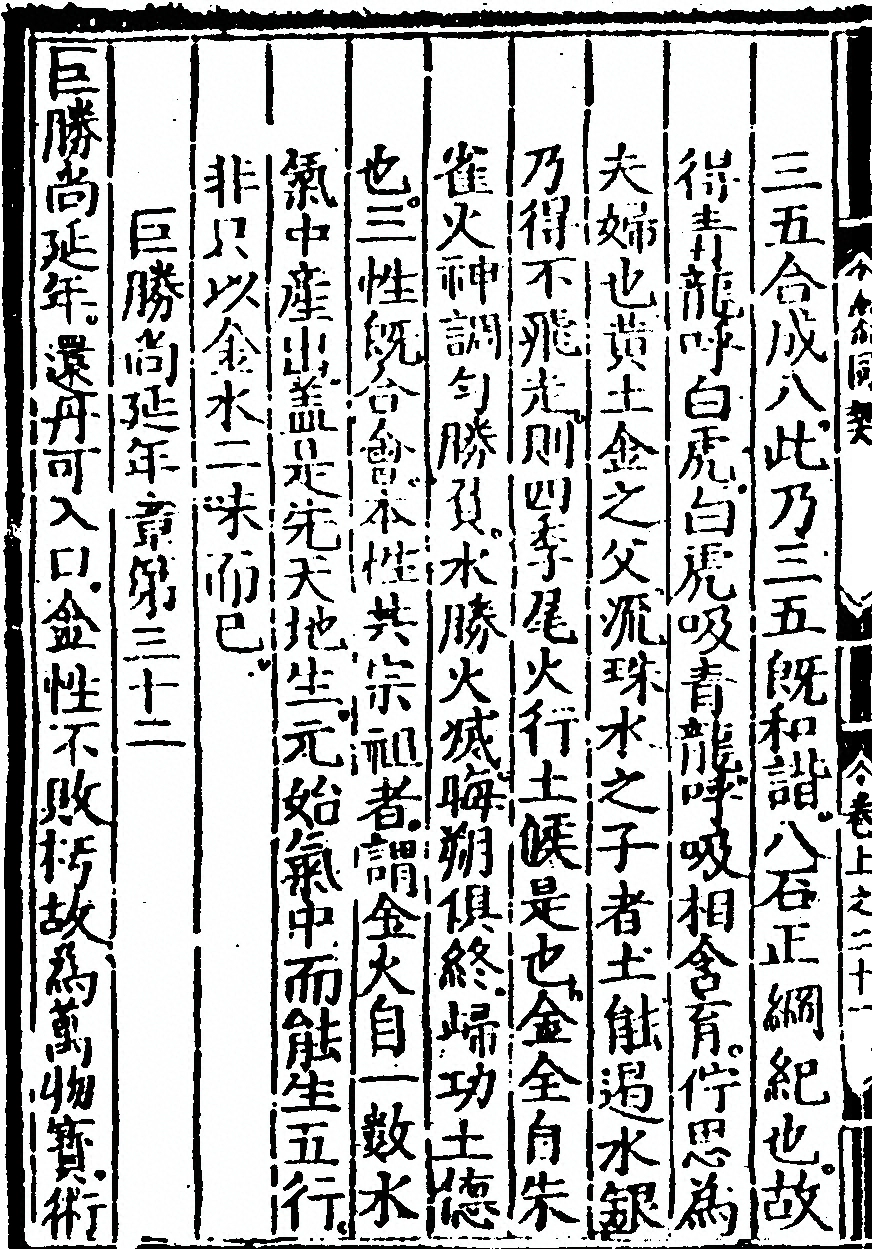 參同契
卷上之二十一
三五合成八此乃三五旣和諧八石正綱紀也故
得青龍呼白虎白虎吸青龍呼吸相含育佇思為
夫婦也黃土金之父流珠水之子者土能遏水銀
乃得不飛走則四季尾火行土候是也金全自朱
雀火神調勻勝負水勝火滅晦朔俱終歸功土德
也三性旣合會本性共宗祖者謂金火自一數水
氣中產出盖是先天地生元始氣中而能生五行
非只以金水二味而已
巨勝尚延年章第三十二
巨勝尚延年還丹可入口金性不敗朽故為萬物寶術